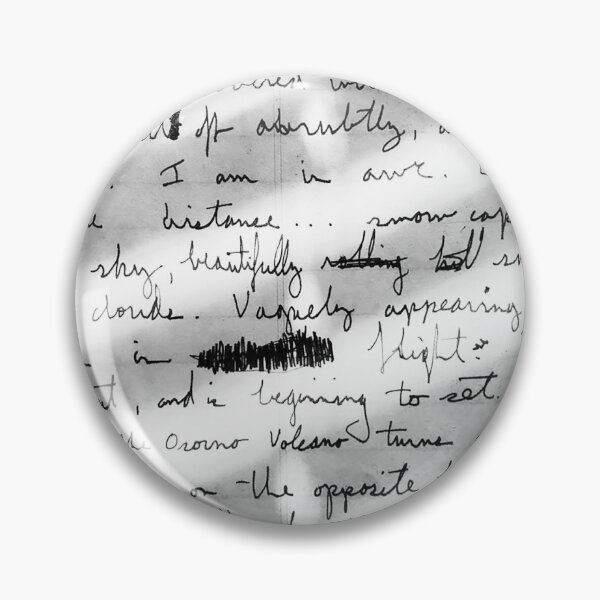 off abrubtly, a
I am in awe.
distance... snow cap
sky, beautifully rolling
clouds. Vaguely appearing
in flight?
t, and is beginning to set.
Osorno Volcano turns
on the opposite